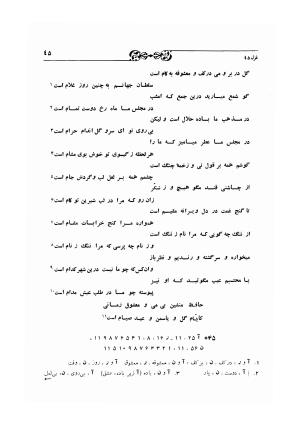 غزل ۴۵
۴۵
گل در بر و می در کف و معشوقه به کام است
سلطان جهانم به چنین روز غلام است ۱
گو شمع میارید درین جمع که امشب
در مجلس ما ماه رخ دوست تمام است ۲
در مذهب ما باده حلال است و لیکن
بی‌روی تو ای سرو گل اندام حرام است ۳
در مجلس ما عطر میامیز که ما را
هر لحظه ز گیسوی تو خوش بوی مشام است
گوشم همه بر قول نی و نغمهٔ چنگ است
چشمم همه بر لعل لب و گردش جام است
از چاشنی قند مگو هیچ و ز شکّر
زان رو که مرا در لب شیرین تو کام است
تا گنج غمت در دل ویرانه مقیم است
همواره مرا کنج خرابات مقام است
از ننگ چه گویی که مرا نام ز ننگ است
وز نام چه پرسی که مرا ننگ ز نام است
میخواره و سرگشته و رندیم و نظرباز
وان‌کس که چو ما نیست درین شهر کدام است
با محتسبم عیب مگویید که او نیز
پیوسته چو ما در طلب عیش مدام است
حافظ منشین بی می و معشوق زمانی
کایّام گل و یاسمن و عید صیام است